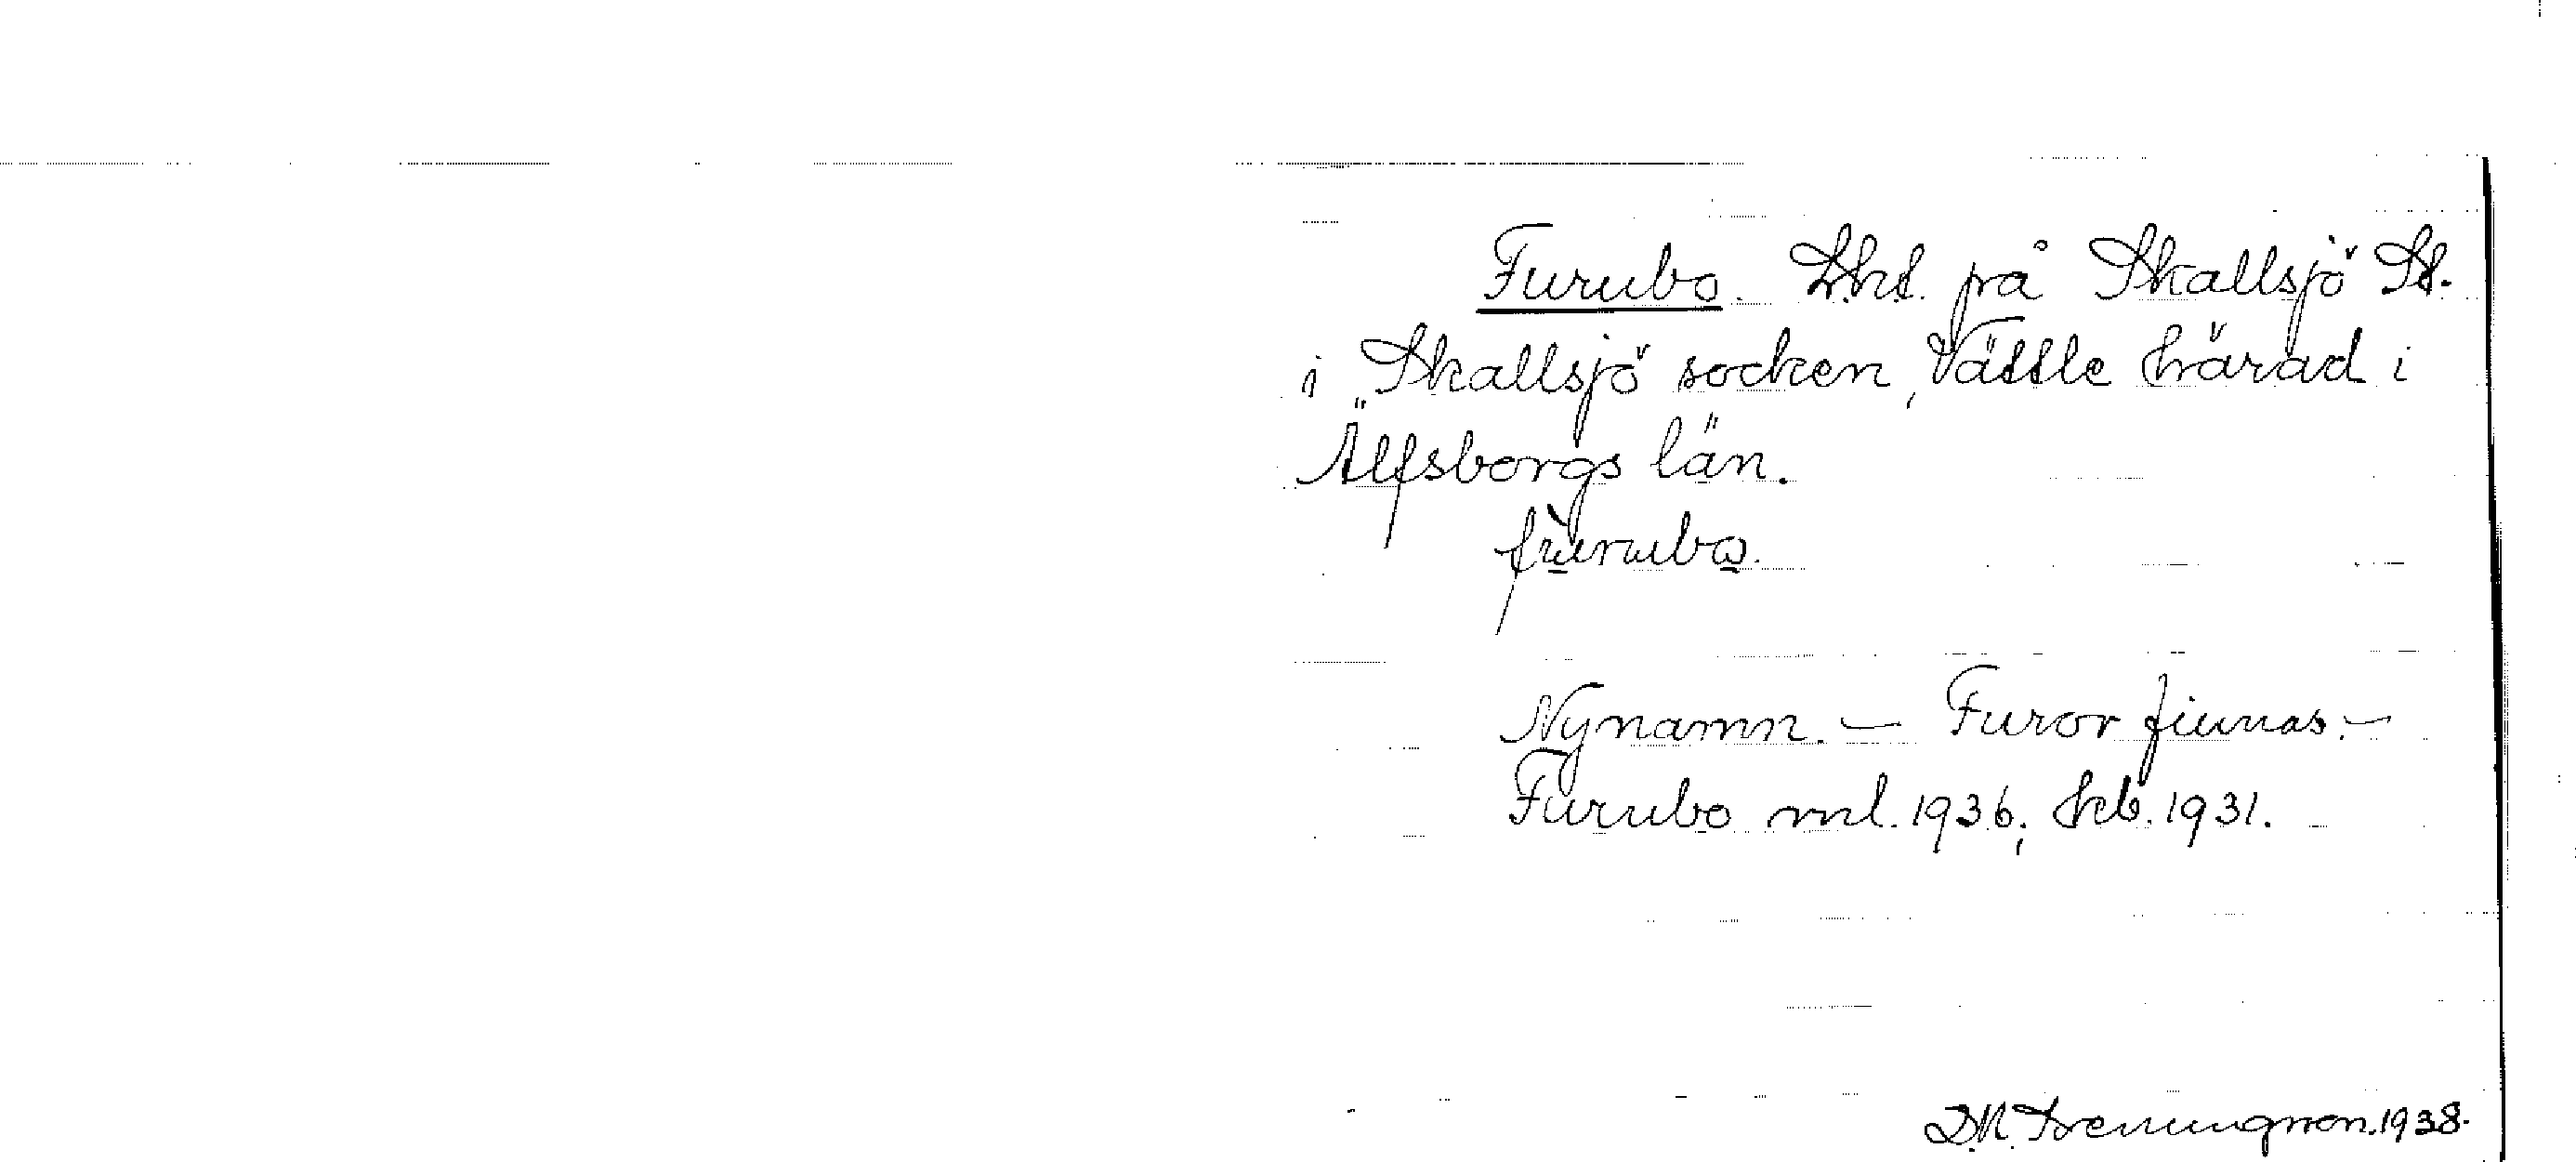 Furubo. Lht. på Skallsjö St.
i Skallsjö socken, Vättle härad i
Älfsborgs län.
fùrubo.
Nynamn. — Furor finnas. —
Furubo ml. 1936; hkb. 1931.
1938.